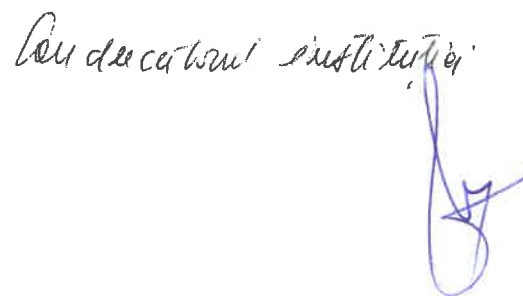 Conducătorul instituției